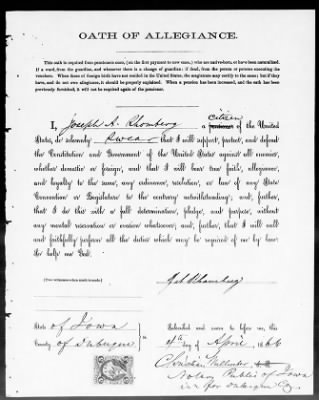 OATH OF ALLEGIANCE.
This oath is required from pensioners once, (on the first payment to new ones,) who are native-born, or have been naturalized.
If a ward, from the guardian, and whenever there is a change of guardian; if dead, from the person or persons executing the
vouchers. When those of foreign birth have not resided in the United States, the magistrate may certify to the same; but if they
have, and do not swear allegiance, it should be properly explained. When a pension has been increased, and the oath has been
previously furnished, it will not be required again of the pensioner.
I, Joseph A. Rhomberg a citizen of the United
States, do solemnly Swear that I will support, protect, and defend
the Constitution and Government of the United States against all enemies,
whether domestic or foreign, and that I will bear true faith, allegiance,
and loyalty to the same, any ordinance, resolution, or law of any State
Convention or Legislature to the contrary notwithstanding; and, further, that
I do this with a full determination, pledge, and purpose, without
any mental reservation or evasion whatsoever; and, further, that I will well
and faithfully perform all the duties which may be required of me by law:
So help me God.
(Two witnesses when mark is made.)
J A Rhomberg
State of Iowa
County of Dubuque
Subscribed and sworn to before me, this
day of April, 1866
Notary Public of Iowa
in & for Dubuque Co.